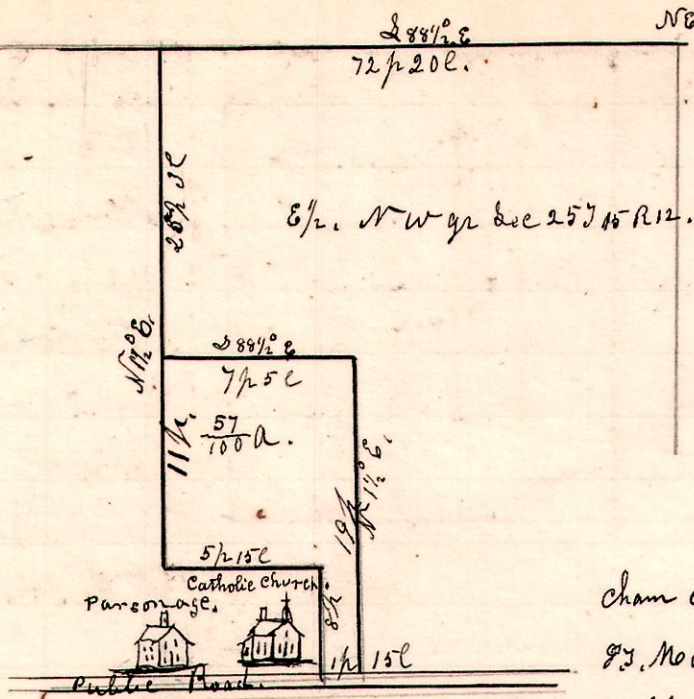 NE
S 88½° E
72p 20l.
E½. N W qr Sec 25 T 15 R 12.
N 1½° E.
S 88½° E
7p 5l
11p.
57/100 a.
19p
N 1½° E.
5p 15l
Catholic Church.
Parsonage.
8p
1p 15l
Public Road.